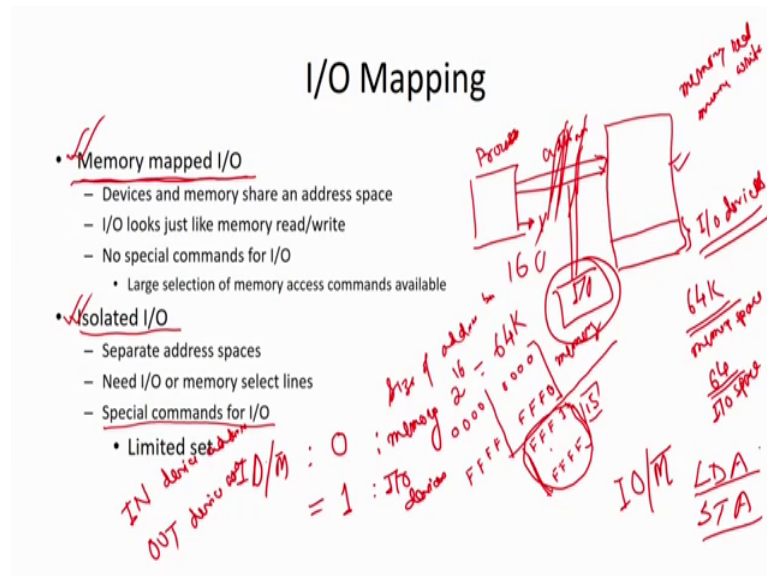 I/O Mapping
• Memory mapped I/O
– Devices and memory share an address space
– I/O looks just like memory read/write
– No special commands for I/O
• Large selection of memory access commands available
• Isolated I/O
– Separate address spaces
– Need I/O or memory select lines
– Special commands for I/O
• Limited set
memory read
memory write
I/O devices
I/O
64K
memory space
64
I/O space
Size of address
16
2 = 64K
memory
0000
0000
FFFF
FFF0
FFF
FFFF
15
IO/M : 0 : memory
= 1 : I/O
devices
IN device
OUT device
IO/M
LDA
STA